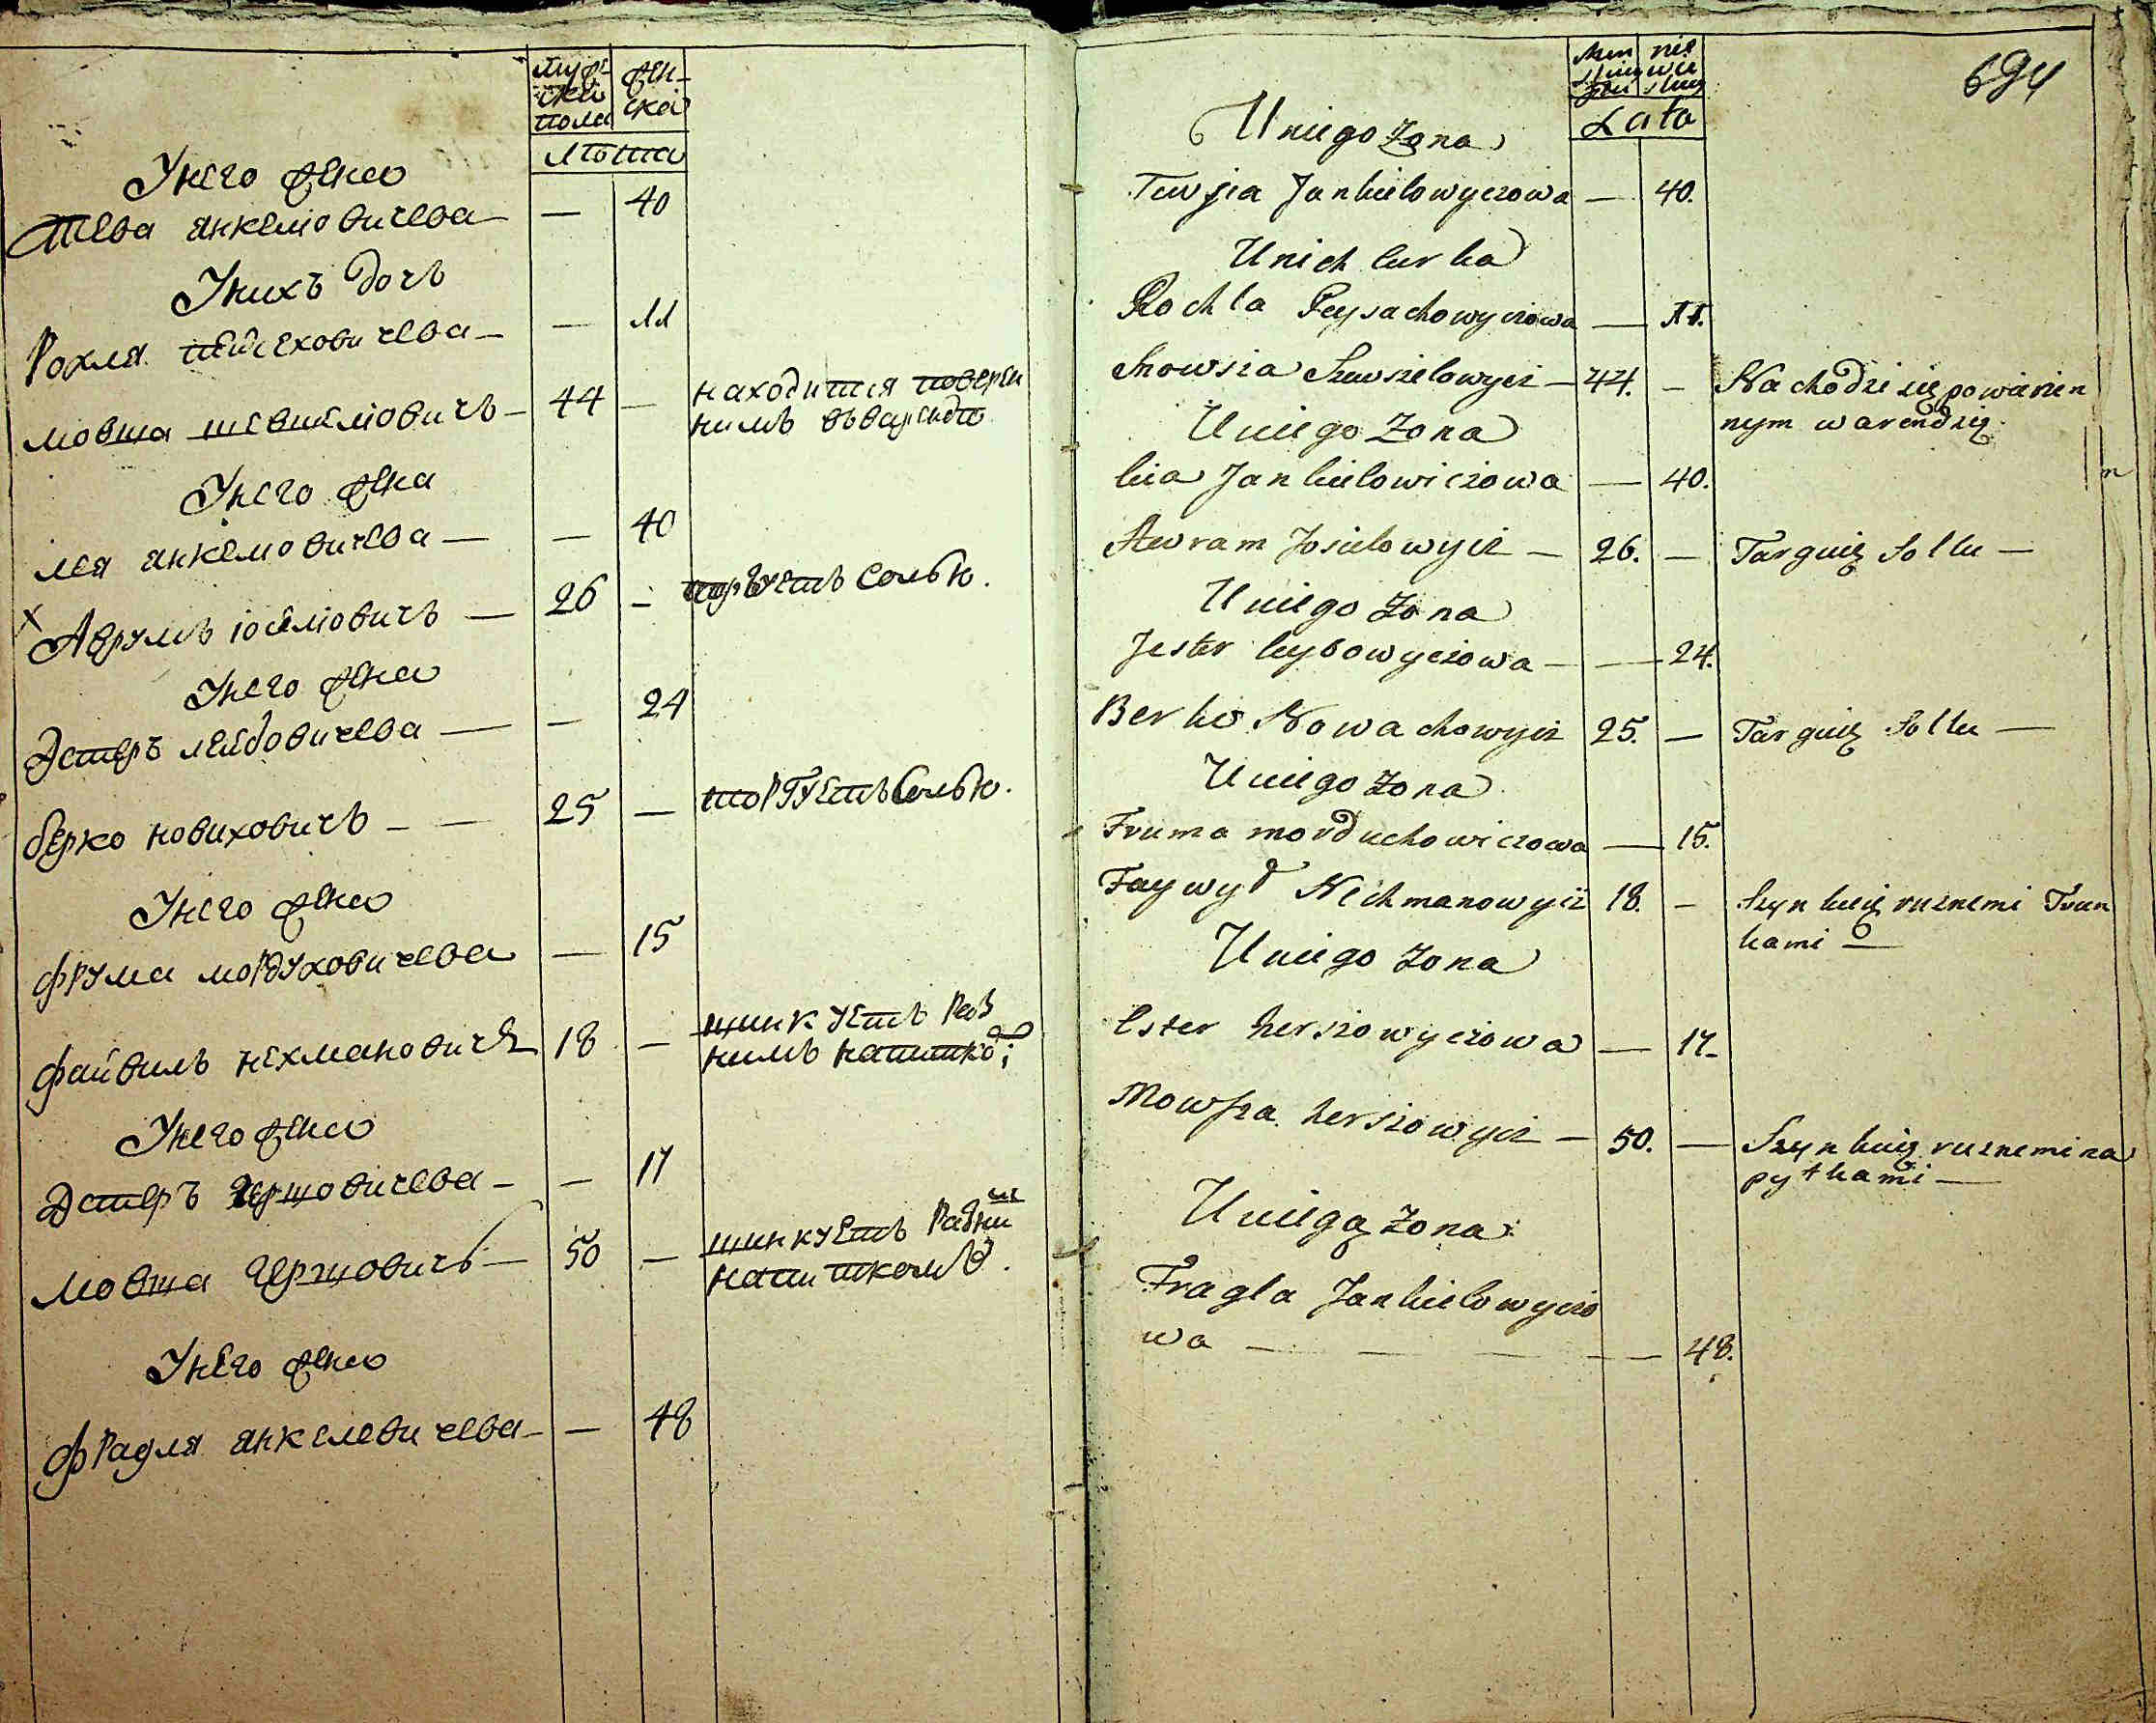 муже
ска
пола
жен-
ска
лѣта
У него жена
Тевя Янкелювичева — — 40
У нихъ дочь
Рохля Пейсеховичева — — 11
Мовша Шевшеловичъ — 44 — находится поверен
нимъ въ варендѣ
У него жена
Лея Янкелювичева — — 40
х Аврумъ Іоселіовичъ — 26 — торгуетъ солью.
У него жена
Эстеръ Лейбовичева — — 24
Берко Новиховичъ — — 25 — торгуетъ солью.
У него жена
Фрума Мордуховичева — 15
Файвиль Нехмановичъ 18 — шинкуетъ раз
нимъ напитко
У него жена
Эстеръ Гершовичева — — 17
Мовша Гершовичъ — 50 — шинкуетъ разни
ми
напиткомъ.
У него жена
Фрадля Янкелевичева — — 48
694
Lata
U niego Zona
Tewsia Jankielowyczowa — 40.
U nich curka
Rochla Peysachowyczowa — 11.
Mowsza Szewszelowycz — 44. — Nachodzi się powierien
nym w arendzię.
U niego Zona
Leia Jankielowiczowa — 40.
Awram Josielowycz — 26. — Targuię Sollu —
U niego Zona
Jester Leybowyczowa — — 24.
Berko Nowachowycz 25. — Targuię Sollu —
U niego Zona
Fruma Morduchowiczowa — 15.
Faywyl Nechmanowycz 18. — Szynkuię ruznemi Trun
kami —
U niego Zona
Ester Herszowyczowa — 17.
Mowsza Herszowycz — 50. — Szynkuię ruznemi na
pytkami —
U niego Zona
Fragla Jankielowyczo
wa — — — — 48.